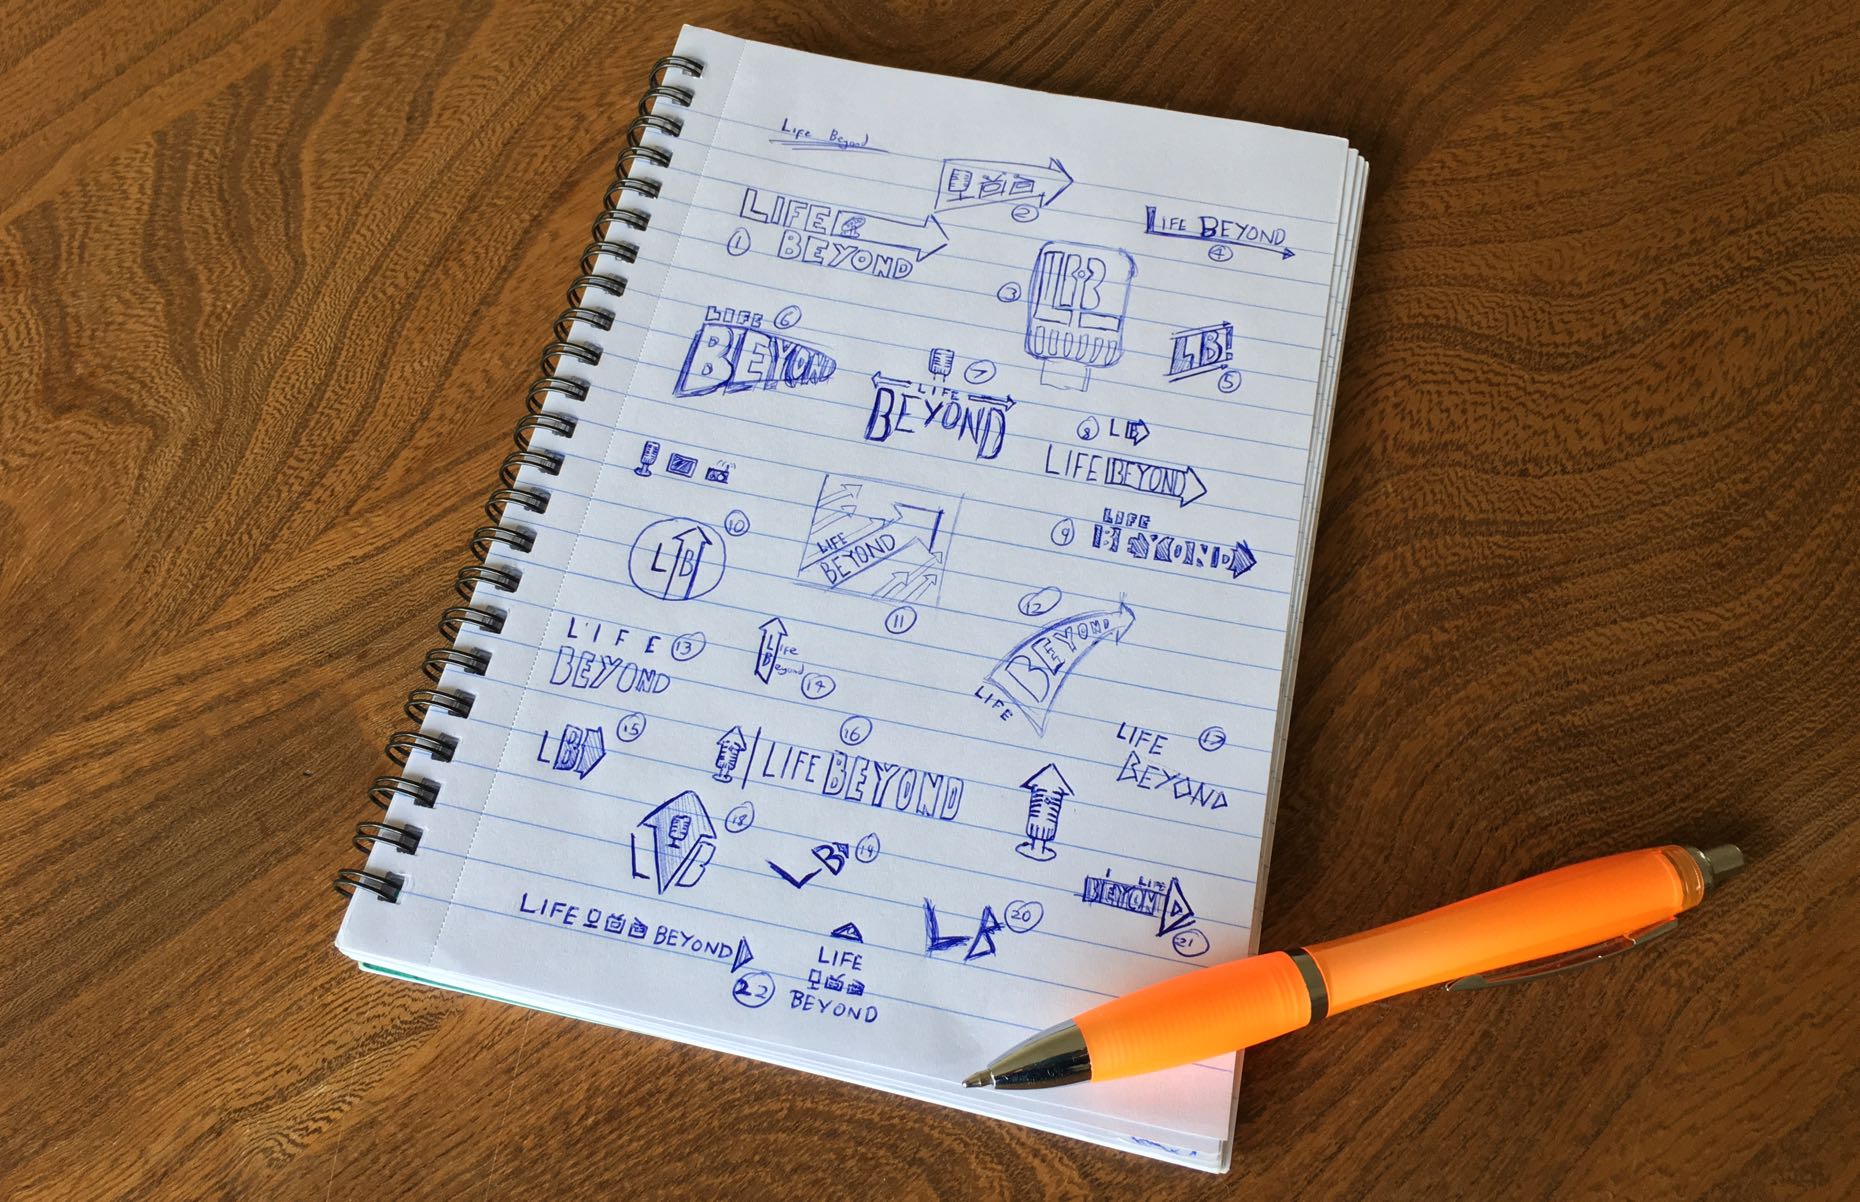 Life Beyond
2
LIFE
BEYOND
1
LIFE BEYOND
4
3
LIFE 6
BEYOND
LB!
5
7
LIFE
BEYOND
8 LB
LIFE BEYOND
10
LB
LIFE
BEYOND
11
9 LIFE
BEYOND
12
LIFE BEYOND
LIFE 13
BEYOND
Life
Beyond
14
LB 15
16
LIFE BEYOND
LIFE 17
BEYOND
18
LB
LB 19
LB 20
LIFE
BEYOND
21
LIFE BEYOND
22
LIFE
BEYOND